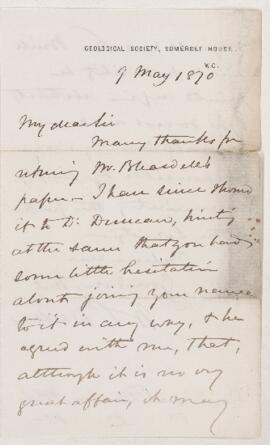 GEOLOGICAL SOCIETY, SOMERSET HOUSE.
W.C.
9 May 1870
My dear Sir
Many thanks for
returning Mr.
paper — I have since showed
it to Dr. Duncan, hinting
at the same that you had
some little hesitation
about joining your name
to it in any way, & he
agreed with me, that,
although it is no very
great affair, it may